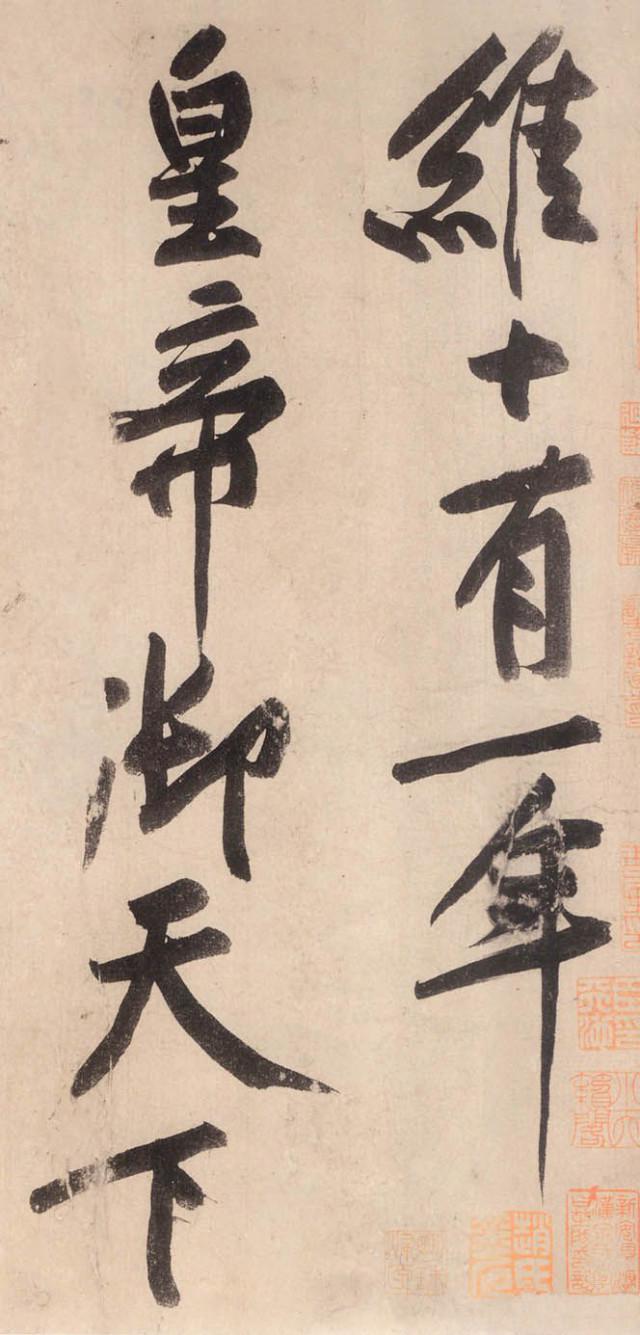 維十有一年
皇帝御天下
趙氏